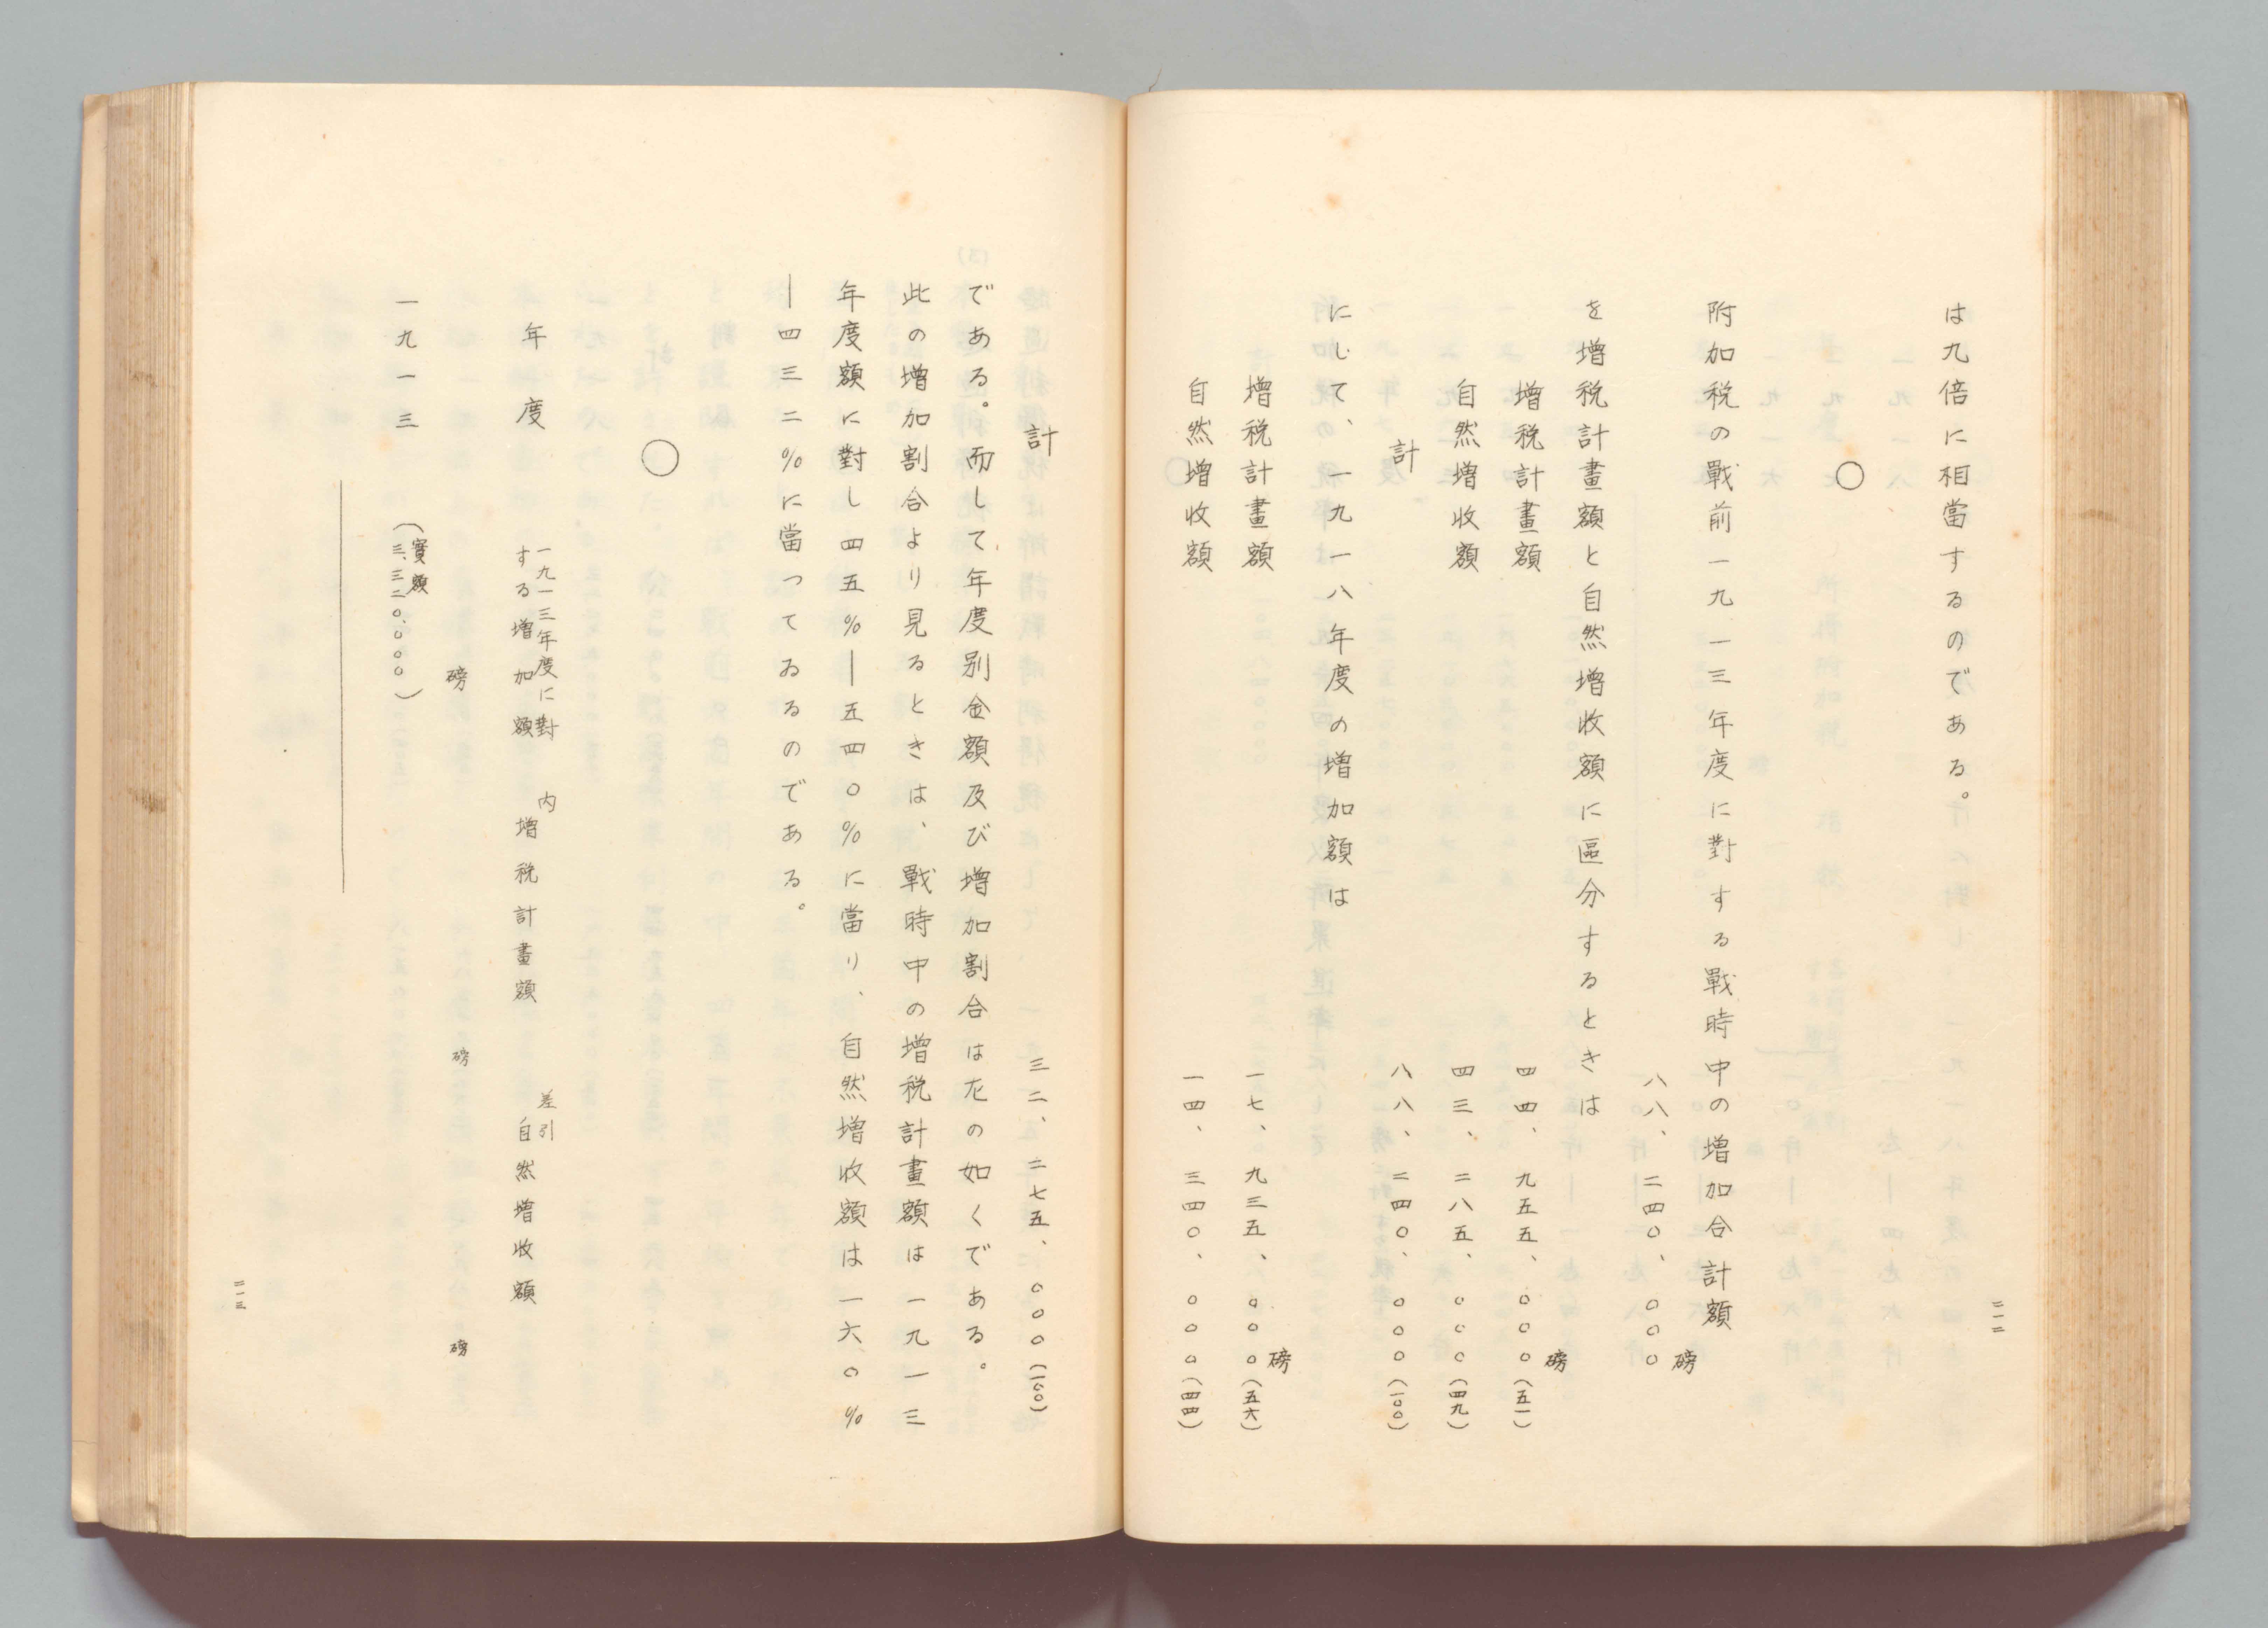 は九倍に相當するのである。
○
附加税の戰前一九一三年度に對する戰時中の増加合計額
八八、二四〇、〇〇〇磅
を増税計畫額と自然増收額に區分するときは
増税計畫額 四四、九五五、〇〇〇磅(五一)
自然増收額 四三、二八五、〇〇〇(四九)
計 八八、二四〇、〇〇〇(一〇〇)
にして、一九一八年度の増加額は
増税計畫額 一七、九三五、〇〇〇磅(五六)
自然増收額 一四、三四〇、〇〇〇(四四)
二一二
計 三二、二七五、〇〇〇(一〇〇)
である。而して年度別金額及び増加割合は左の如くである。
此の増加割合より見るときは、戰時中の増税計畫額は一九一三
年度額に對し四五%―五四〇%に當り、自然増收額は一六〇%
―四三二%に當つてゐるのである。
○
年度 一九一三年度に對する増加額 内増税計畫額 差引自然増收額
磅 磅 磅
一九一三 (實額三、三三〇、〇〇〇)
二一三